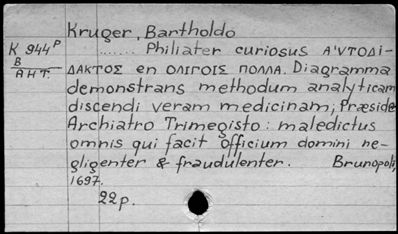 Kruger, Bartholdo
K 944ᵖ ....... Philiater curiosus Α'ΥΤΟΔΙ-
B
AHT. ΔΑΚΤΟΣ en ΟΛΙΓΟΙΣ ΠΟΛΛΑ. Diagramma
demonstrans methodum analyticam
discendi veram medicinam; Præside
Archiatro Trimegisto: maledictus
omnis qui facit officium domini ne-
gligenter & fraudulenter. Brunopoli,
1697.
22p.